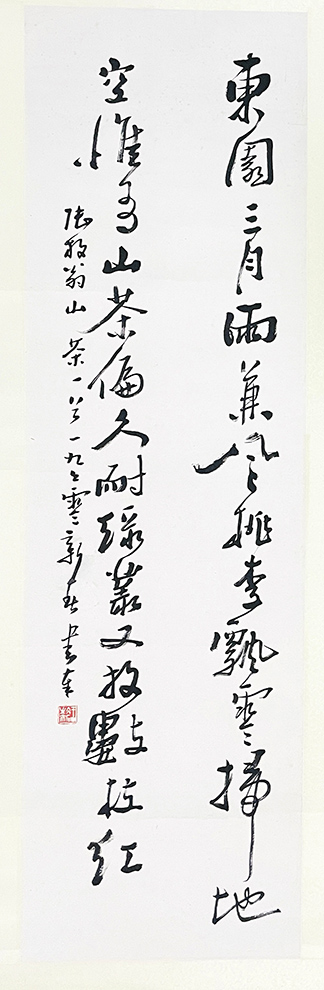 東園三月雨兼風桃李飄零掃地
空惟有山茶偏久耐綠叢又放數枝紅
陸放翁山茶一首一九零新春書